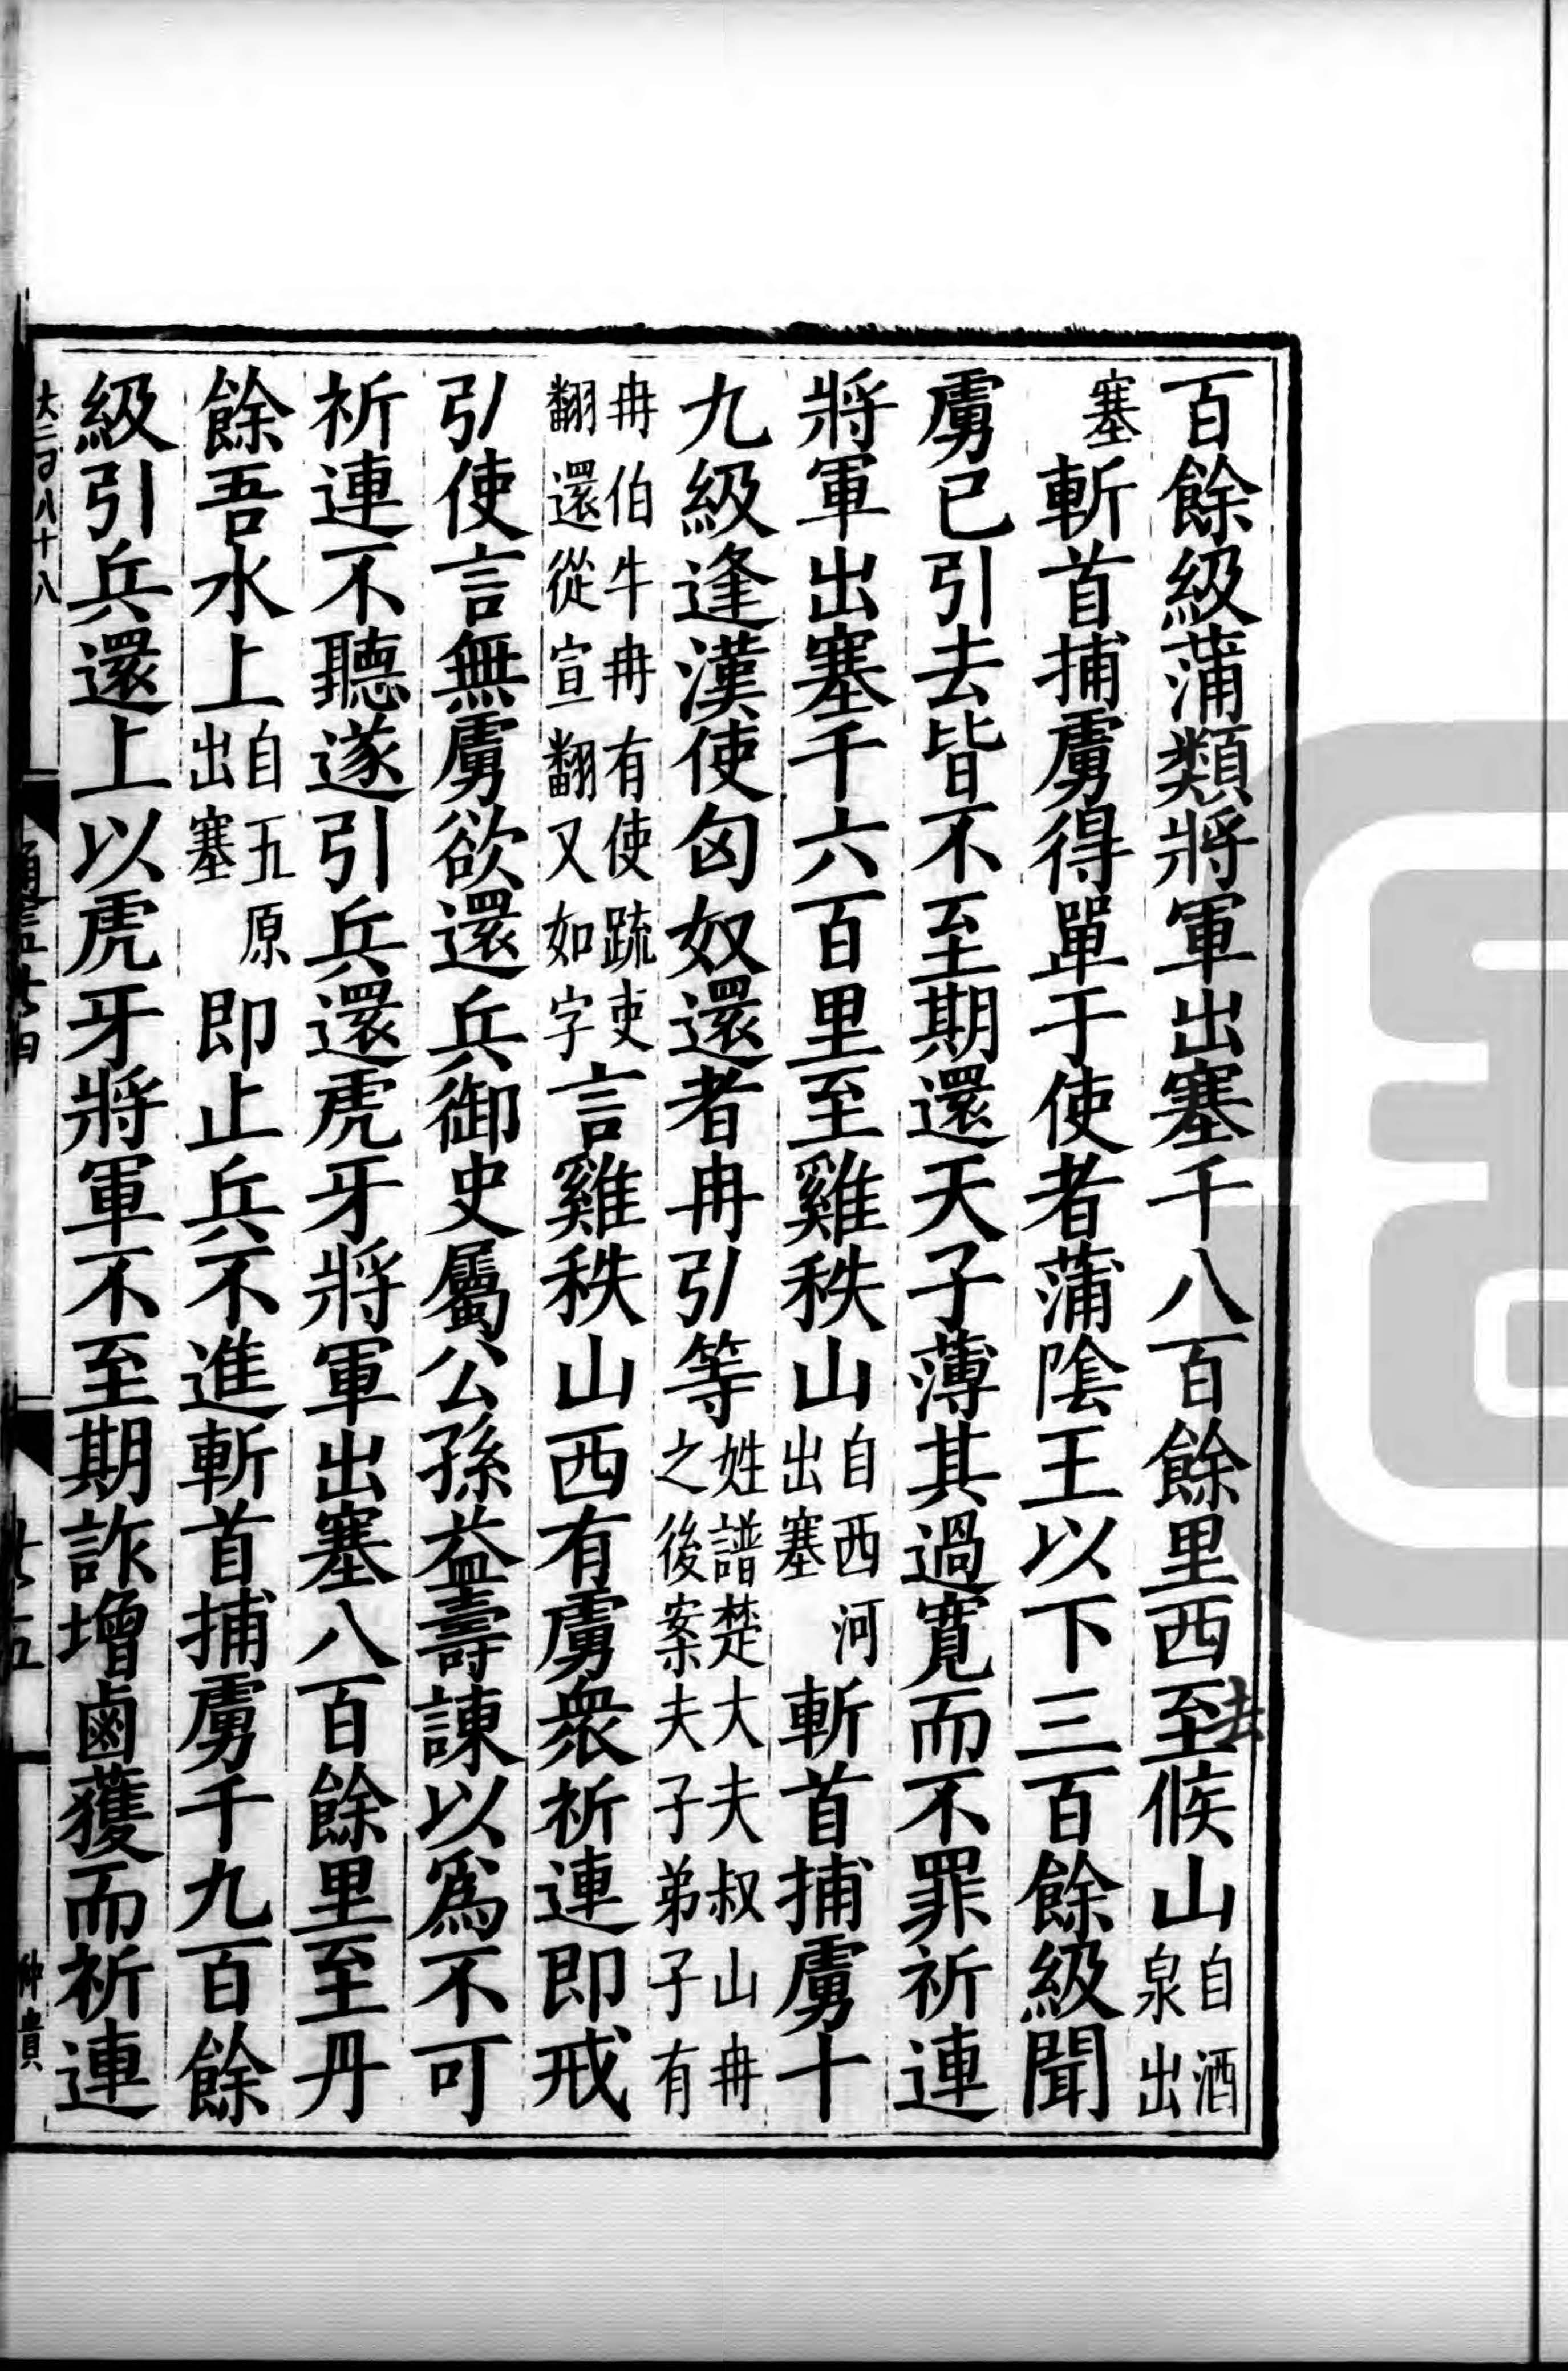 百餘級蒲類將軍出塞千八百餘里西至候山自酒泉出
塞斬首捕虜得單于使者蒲陰王以下三百餘級聞
虜已引去皆不至期還天子薄其過寬而不罪祈連
將軍出塞千六百里至雞秩山自西河出塞斬首捕虜十
九級逢漢使匈奴還者冉引等姓譜楚大夫叔山冉之後案夫子弟子有
冉伯牛冉有使疏吏翻還從宣翻又如字言雞秩山西有虜衆祈連即戒
引使言無虜欲還兵御史屬公孫益壽諫以爲不可
祈連不聽遂引兵還虎牙將軍出塞八百餘里至丹
餘吾水上自五原出塞即止兵不進斬首捕虜千九百餘
級引兵還上以虎牙將軍不至期詐增鹵獲而祈連
大三百八十八
仲貴